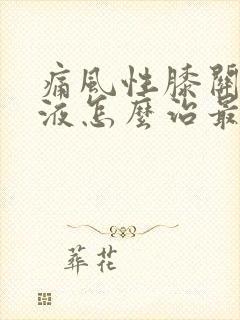 痛風性膝關
液怎麼治最
葬花